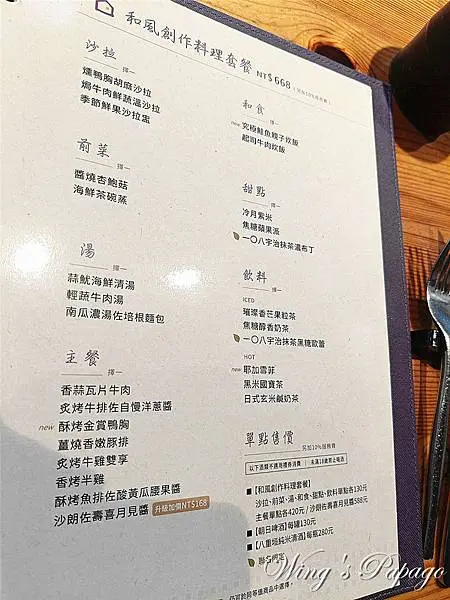 和風創作料理套餐 NT$668
沙拉
擇一
燻鴨胸胡麻沙拉
焗牛肉鮮蔬溫沙拉
季節鮮果沙拉盅
前菜
擇一
醬燒杏鮑菇
海鮮茶碗蒸
湯
擇一
蒜魷海鮮清湯
輕蔬牛肉湯
南瓜濃湯佐培根麵包
主餐
擇一
香蒜瓦片牛肉
炙烤牛排佐自慢洋蔥醬
new 酥烤金賞鴨胸
薑燒香嫩豚排
炙烤牛雞雙享
香烤半雞
酥烤魚排佐酸黃瓜腰果醬
沙朗佐壽喜月見醬 升級加價NT$168
和食
擇一
new 究極鮭魚親子炊飯
起司牛肉炊飯
甜點
擇一
冷月紫米
焦糖蘋果派
一〇八宇治抹茶濃布丁
飲料
擇一
ICED
璀璨香芒果粒茶
焦糖醇香奶茶
一〇八宇治抹茶黑糖歐蕾
HOT
new 耶加雪菲
黑米國寶茶
日式玄米鹹奶茶
單點售價
另加10%服務費
以下酒類不適用禮券消費 | 未滿18歲禁止喝酒
■【和風創作料理套餐】
沙拉、前菜、湯、和食、甜點、飲料單點各130元
主餐單點各420元 / 沙朗佐壽喜月見醬588元
■【朝日啤酒】每罐130元
■【八重垣純米清酒】每瓶280元
Wing's Papago